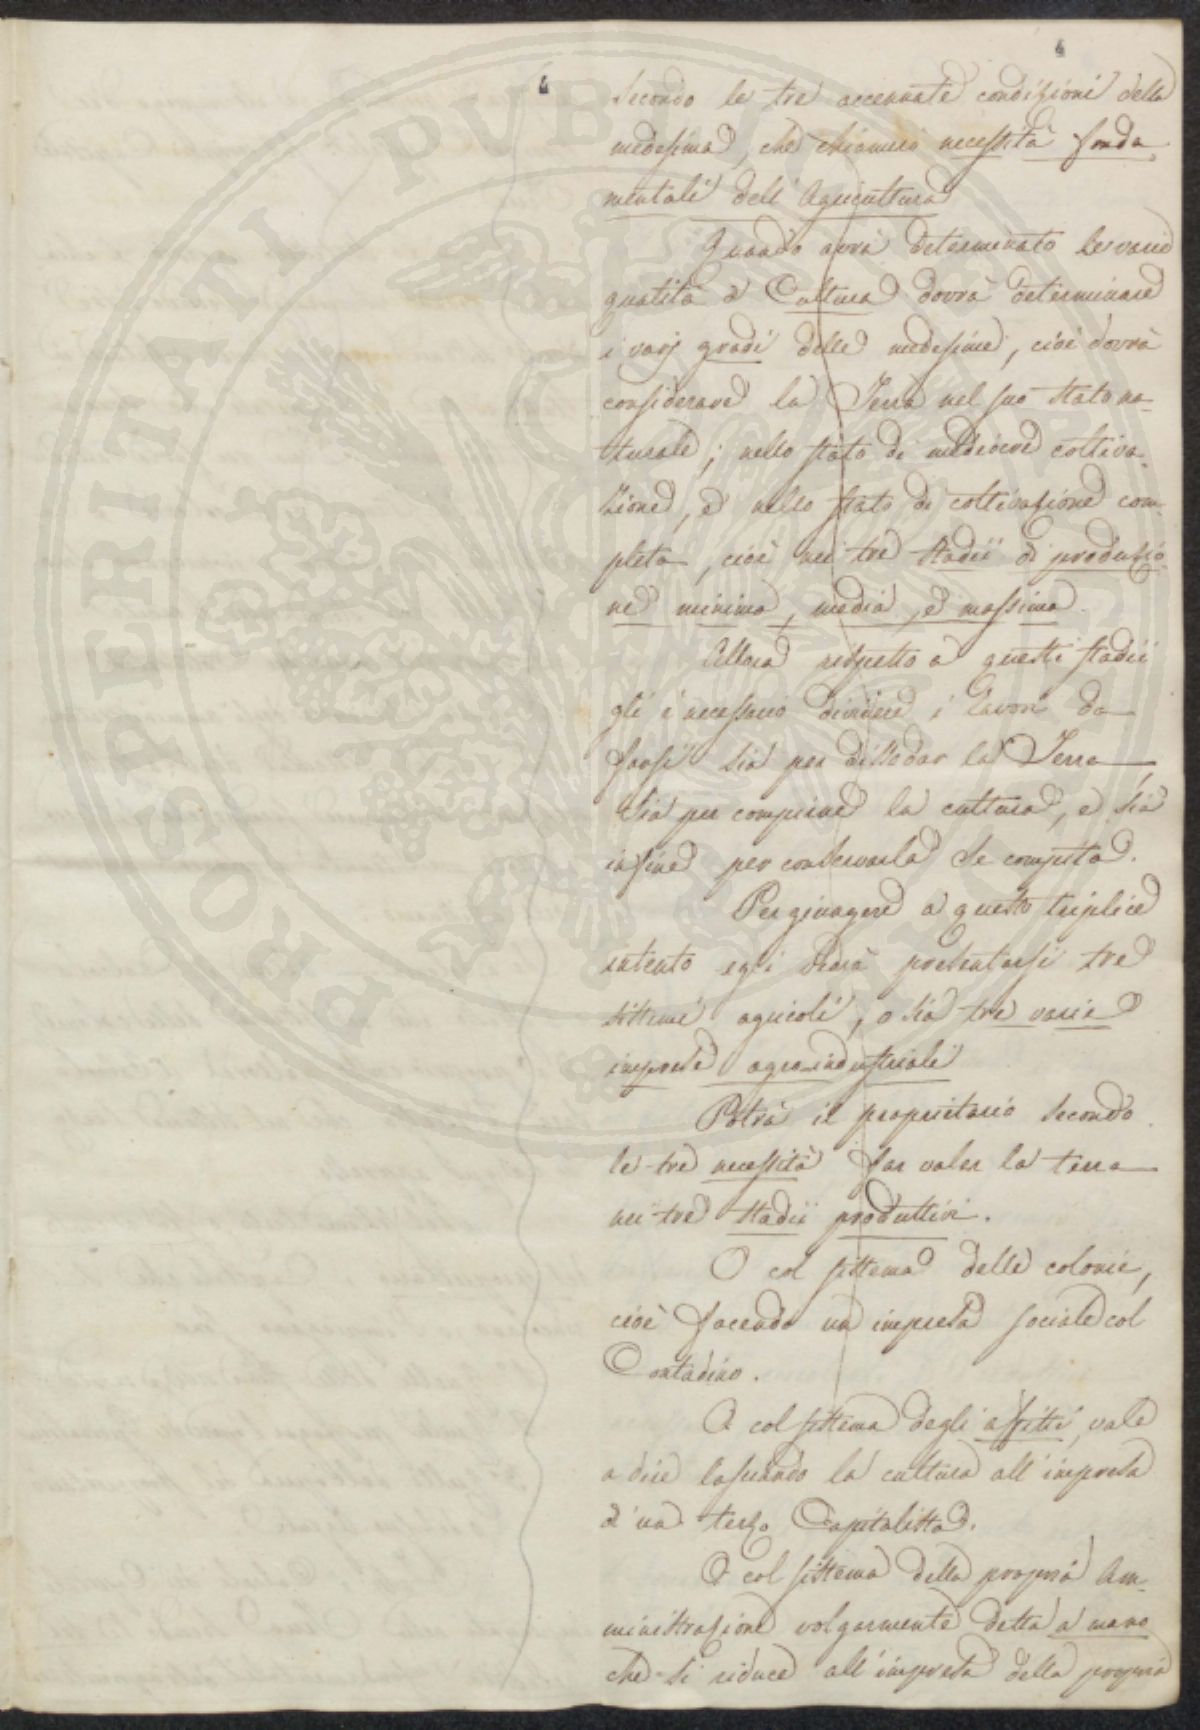 6
6
secondo le tre accennate condizioni della
medesima, che chiamerò necessità fonda-
mentali dell'Agricultura
Quando avrà determinato le varie
qualità di Cultura dovrà determinare
i varj gradi delle medesime, cioè dovrà
considerare la Terra nel suo stato na-
turale; nello stato di mediocre coltiva-
zione, e nello stato di coltivazione com-
pleta, cioè nei tre stadii di produzio-
ne minima, media, e massima.
Allora rispetto a questi stadii
gli è necessario dividere i lavori da
farsi sia per dissodar la Terra,
sia per compierne la cultura, e sia
infine per conservarla se compita.
Per giungere a questo triplice
intento egli vedrà presentarsi tre
sistemi agricoli, o sia tre varie
imprese agroindustriali
Potrà il proprietario secondo
le tre necessità far valer la terra
nei tre stadii produttivi.
O col sistema delle colonie,
cioè facendo un impresa sociale col
Contadino.
O col sistema degli affitti, vale
a dire lasciando la cultura all'impresa
d'un terzo Capitalista.
O col sistema della propria Am-
ministrazione volgarmente detta a mano
che si riduce all'impresa della propria
PROSPERITATI PUBLICAE